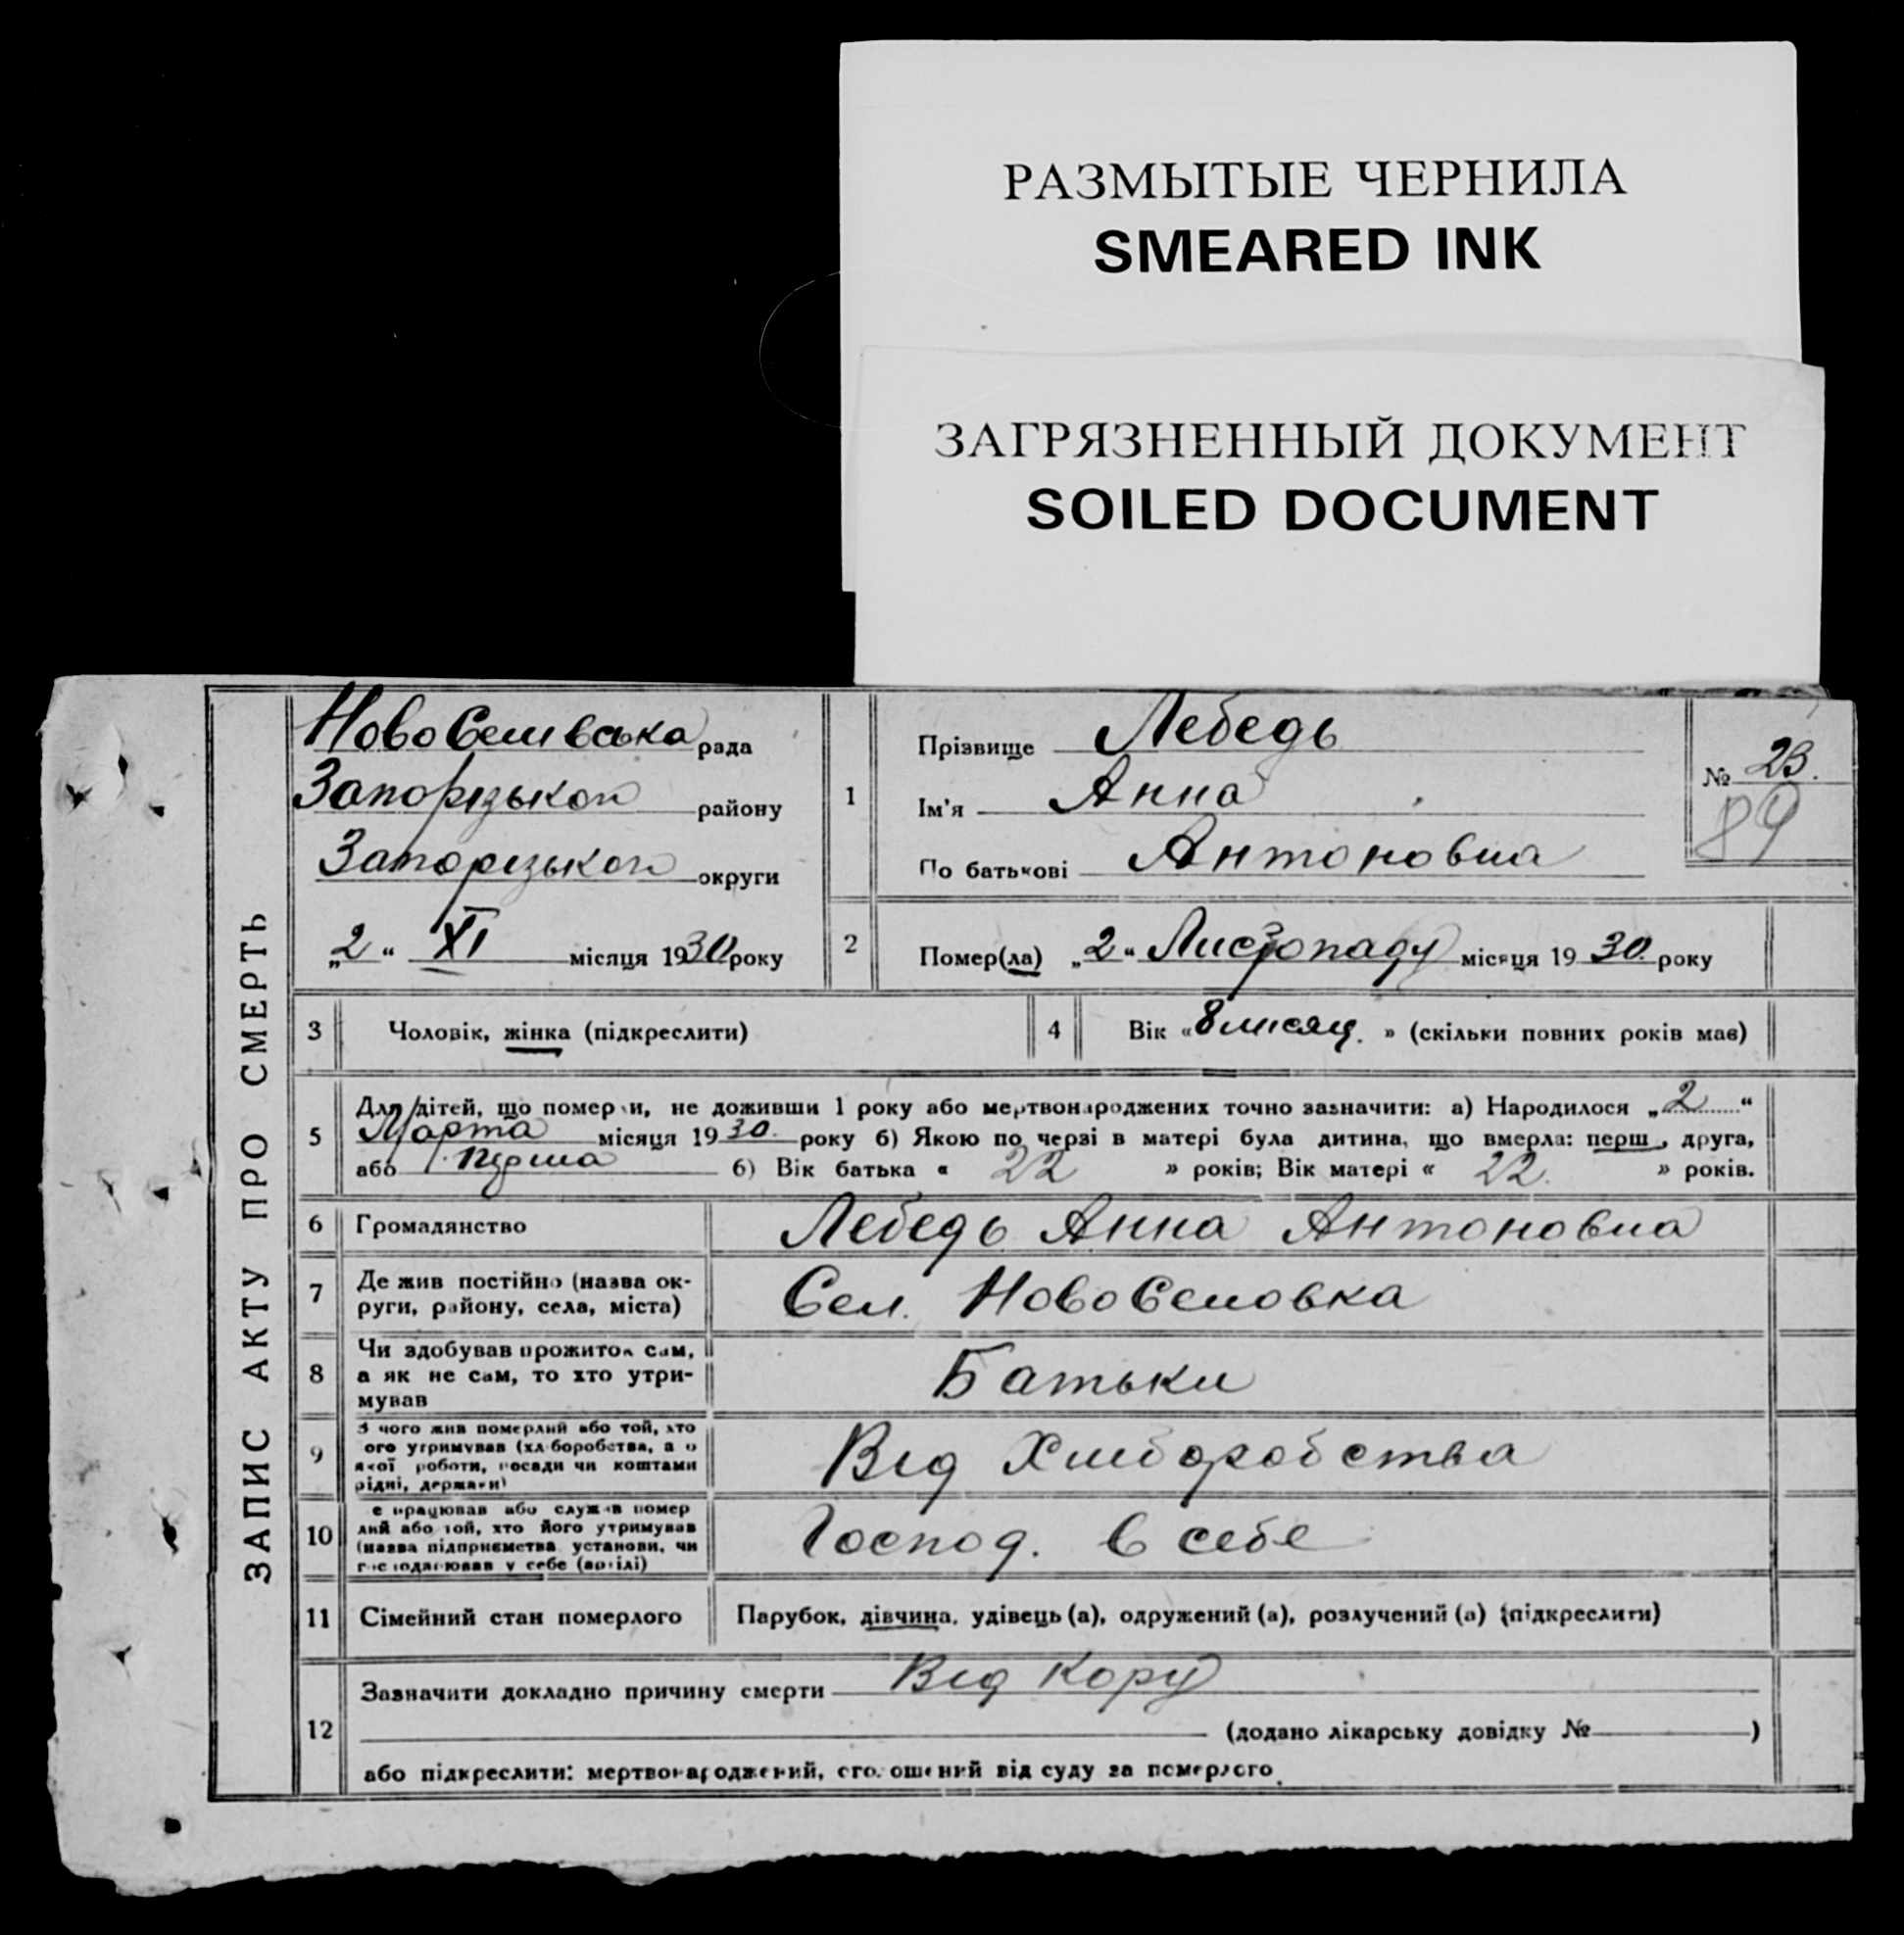 РАЗМЫТЫЕ ЧЕРНИЛА
SMEARED INK
ЗАГРЯЗНЕННЫЙ ДОКУМЕНТ
SOILED DOCUMENT
ЗАПИС АКТУ ПРО СМЕРТЬ
НовоСелівська рада
Запорізького району
Запорізького округи
„2“ XI місяця 1930 року
1
Прізвище Лебедь
Ім'я Анна
По батькові Антоновна
№ 23.
89
2 Помер(ла) „2“ Листопаду місяця 1930. року
3 Чоловік, жінка (підкреслити)
4 Вік «8 місяц.» (скільки повних років має)
5 Для дітей, що померли, не доживши 1 року або мертвонароджених точно зазначити: а) Народилося „2“
Марта місяця 1930. року б) Якою по черзі в матері була дитина, що вмерла: перша, друга,
або перша б) Вік батька « 22 » років; Вік матері « 22. » років.
6 Громадянство Лебедь Анна Антоновна
7 Де жив постійно (назва ок-
руги, району, села, міста) Сел. НовоСеловка
8 Чи здобував прожиток сам,
а як не сам, то хто утри-
мував Батьки
9 З чого жив померлий або той, хто
його утримував (хліборобства, з
якої роботи, посади чи коштами
рідні, держави) Від Хліборобства
10 Де працював або служив помер
лий або той, хто його утримував
(назва підприємства установи, чи
господарював у себе (артілі) Господ. в себе
11 Сімейний стан померлого Парубок, дівчина, удівець (а), одружений (а), розлучений (а) (підкреслити)
12 Зазначити докладно причину смерти Від Кору
(додано лікарську довідку № )
або підкреслити: мертвонароджений, оголошений від суду за померлого.